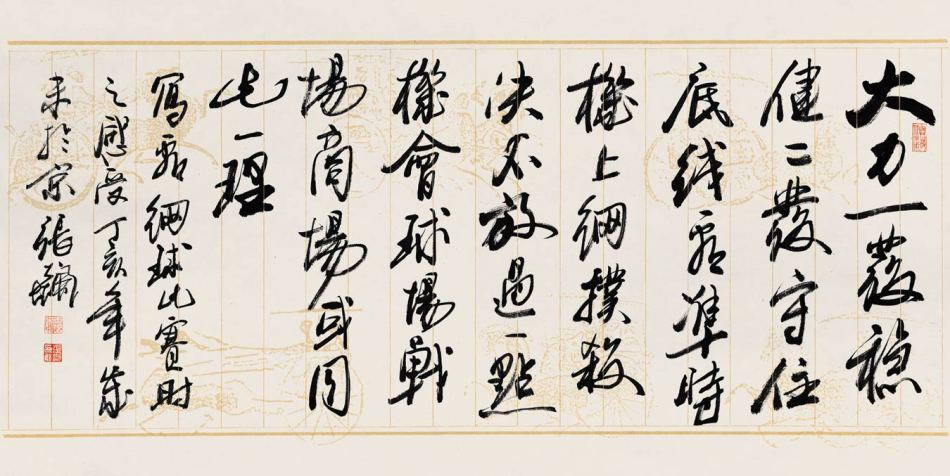 大力一發穩
健二發守住
底线看準時
機上網撲殺
决不放過一點
機會球場戰
場商場同
此一理
寫看網球比賽时
之感受丁亥年歲
末於京張